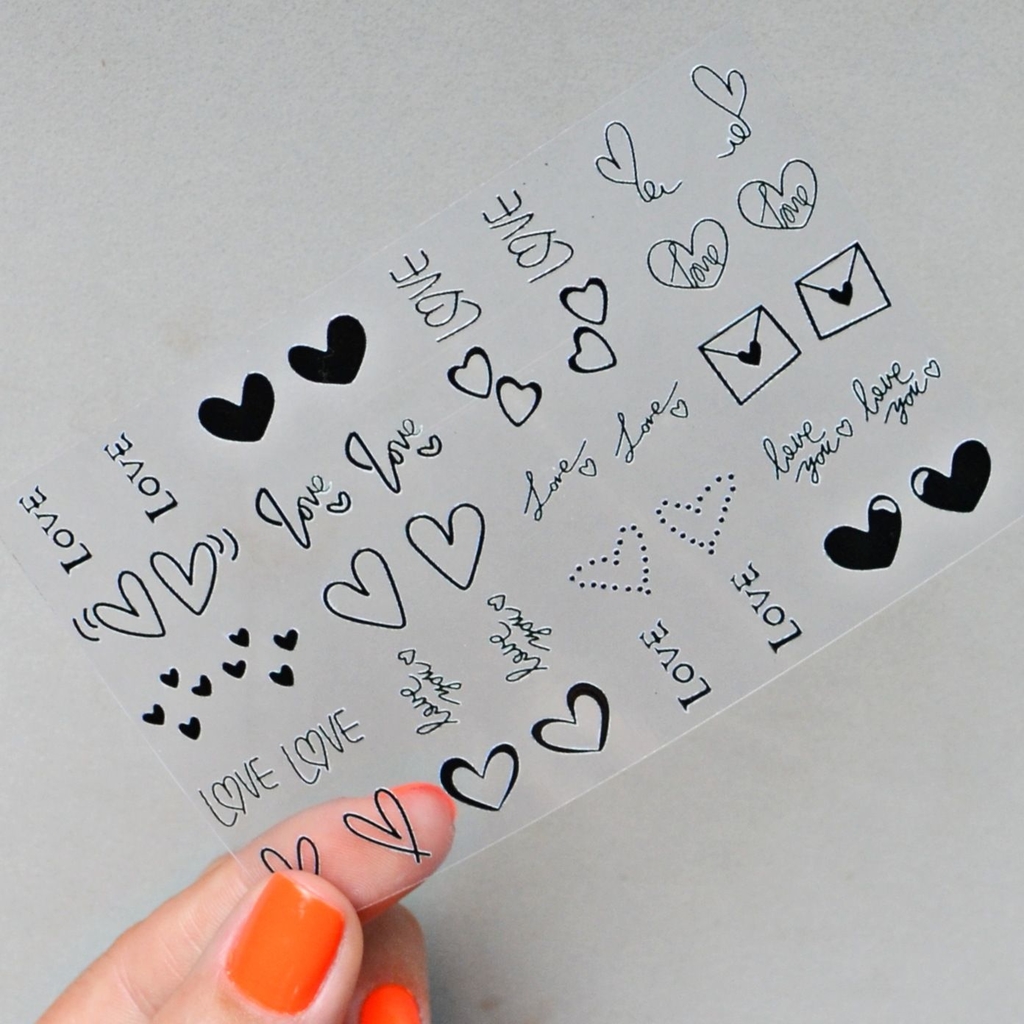 LOVE
LOVE
love
love
LOVE
LOVE
Love
Love
Love
Love
love
you
love
you
love
you
love
you
LOVE
LOVE
LOVE LOVE